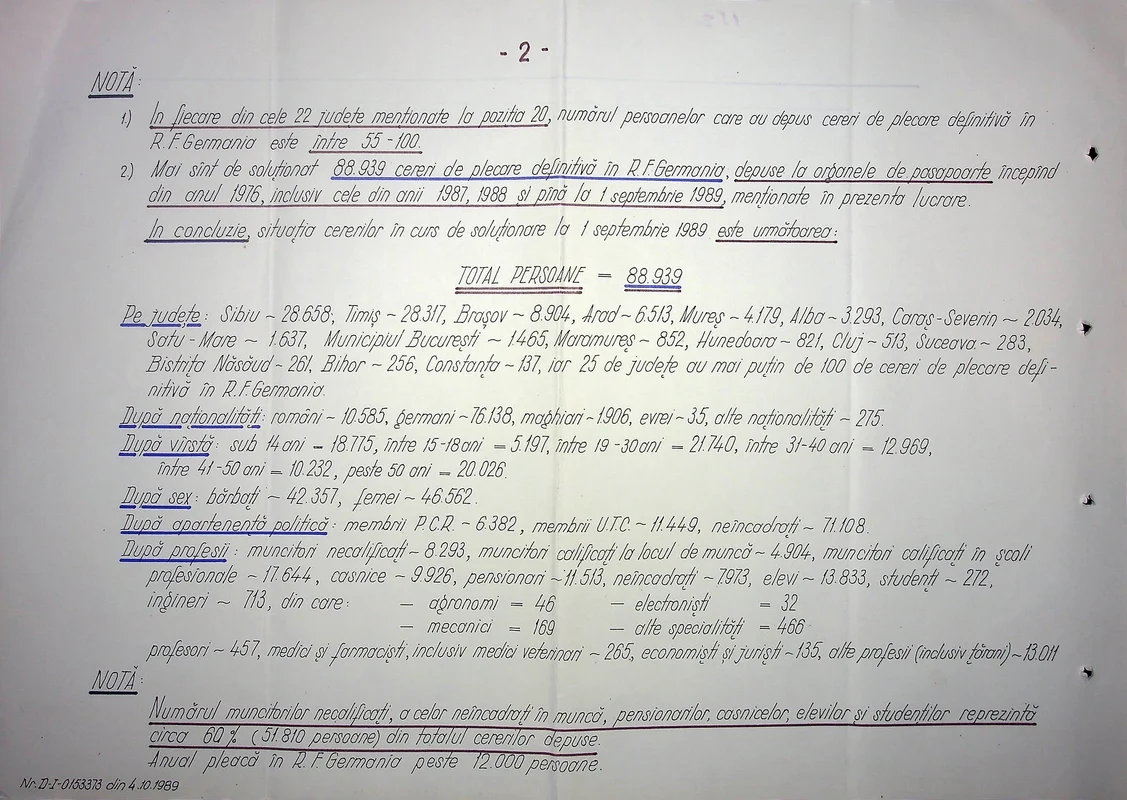 - 2 -
NOTĂ:
1) In fiecare din cele 22 județe menționate la poziția 20, numărul persoanelor care au depus cereri de plecare definitivă în
R.F.Germania este între 55-100.
2) Mai sînt de soluționat 88.939 cereri de plecare definitivă în R.F.Germania, depuse la organele de pașapoarte începînd
din anul 1976, inclusiv cele din anii 1987, 1988 și pînă la 1 septembrie 1989, menționate în prezenta lucrare.
In concluzie, situația cererilor în curs de soluționare la 1 septembrie 1989 este următoarea:
TOTAL PERSOANE = 88.939
Pe județe: Sibiu ~ 28.658; Timiș ~ 28.317, Brașov ~ 8.904, Arad ~ 6.513, Mureș ~ 4.179, Alba ~ 3.293, Caraș-Severin ~ 2.034,
Satu-Mare ~ 1.637, Municipiul București ~ 1.465, Maramureș ~ 852, Hunedoara ~ 821, Cluj ~ 513, Suceava ~ 283,
Bistrița Năsăud ~ 261, Bihor ~ 256, Constanța ~ 137, iar 25 de județe au mai puțin de 100 de cereri de plecare defi-
nitivă în R.F.Germania.
După naționalități: români ~ 10.585, germani ~ 76.138, maghiari ~ 1.906, evrei ~ 35, alte naționalități ~ 275.
După vîrstă: sub 14 ani = 18.775, între 15-18 ani = 5.197, între 19-30 ani = 21.740, între 31-40 ani = 12.969,
între 41-50 ani = 10.232, peste 50 ani = 20.026.
După sex: bărbați ~ 42.357, femei ~ 46.562.
După apartenență politică: membrii P.C.R. ~ 6.382, membrii U.T.C. ~ 11.449, neîncadrați ~ 71.108.
După profesii: muncitori necalificați ~ 8.293, muncitori calificați la locul de muncă ~ 4.904, muncitori calificați în școli
profesionale ~ 17.644, casnice ~ 9.926, pensionari ~ 11.513, neîncadrați ~ 7973, elevi ~ 13.833, studenți ~ 272,
ingineri ~ 713, din care: — agronomi = 46 — electroniști = 32
— mecanici = 169 — alte specialități = 466
profesori ~ 457, medici și farmaciști, inclusiv medici veterinari ~ 265, economiști și juriști ~ 135, alte profesii (inclusiv țărani) ~ 13.011
NOTĂ:
Numărul muncitorilor necalificați, a celor neîncadrați în muncă, pensionarilor, casnicelor, elevilor și studenților reprezintă
circa 60% (51.810 persoane) din totalul cererilor depuse.
Anual pleacă în R.F.Germania peste 12.000 persoane.
Nr. D-I-0153373 din 4.10.1989